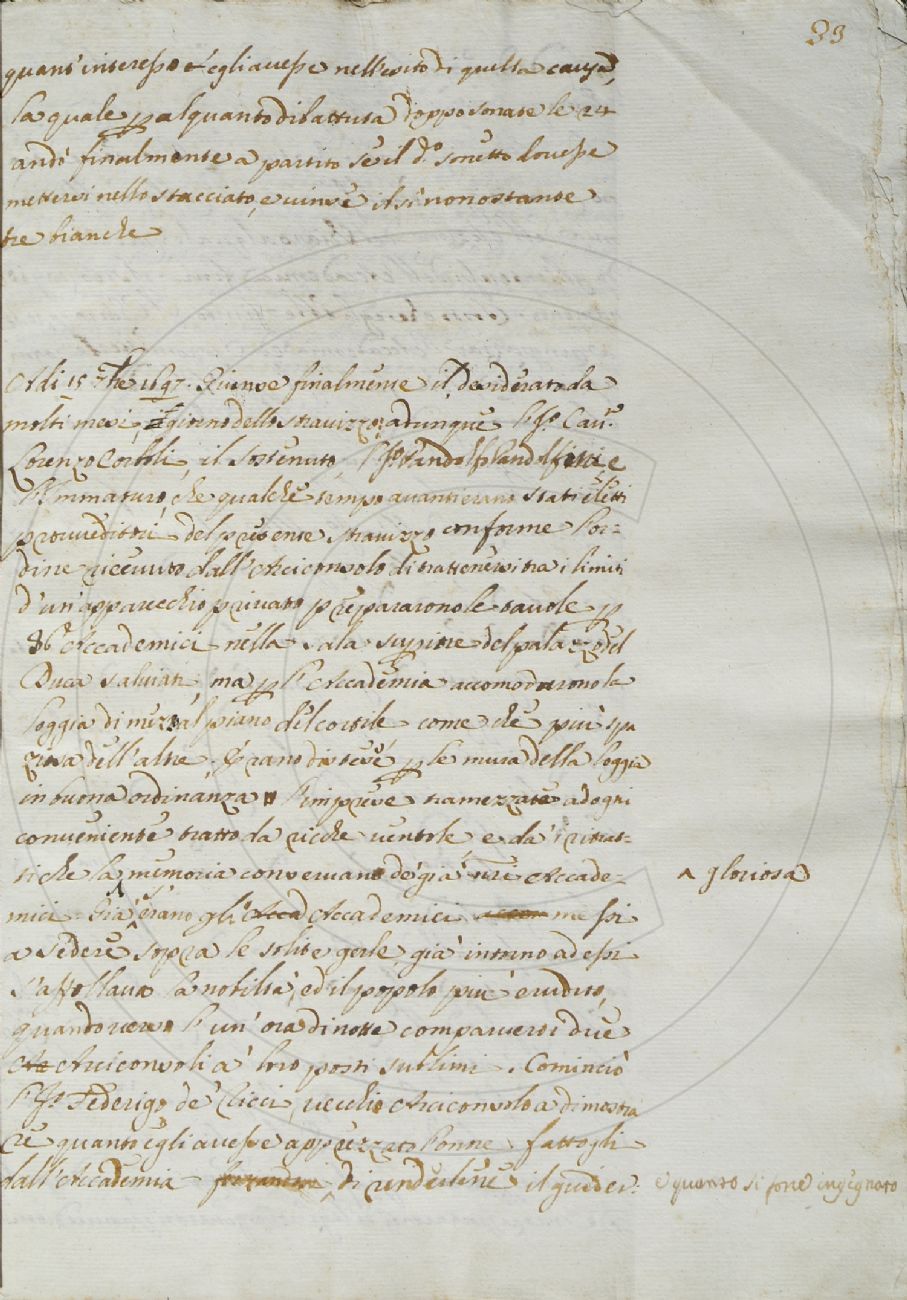 33
quant'interesse egli avesse nell'esito di questa causa,
la quale p alquanto dibattuta doppo sonate le 24
andò finalmente a partito se il d.o sonetto dovesse
mettersi nello stacciato, e vinse il sì nonostante
tre bianche
Adi 15 7bre 1697. Giunse finalmente il desiderato da
molti mesi giorno dello stravizzo; adunque l'Ill. Cav.
Lorenzo il Sostenuto, Pandolf Pandolfini e
l'Immaturo, che qualche tempo avanti erano stati eletti
provveditori del presente stravizzo conforme l'or-
dine ricevuto dall'Arciconsolo di trattenersi tra i limiti
d'un'apparecchio privato prepararono le tavole p
36 Accademici nella sala del palazzo del
Duca Salviati, ma p l'Accademia accomodarono la
loggia di mezzo al piano del cortile come che più spa
ziosa dell'altre. Erano distese p le mura della loggia
in buona ordinanza l'imprese tramezzate ad ogni
conveniente tratto da ricche ventole e da' ritrat-
ti che la memoria conservano de' già nri Accade-
^ gloriosa
mici. Già erano gl' Accad Accademici messi
a sedere sopra le solite gerle già intorno ad essi
s'affollava la nobiltà, ed il popolo più erudito,
quando verso l'un'ora di notte comparvero i due
Arciconsoli a' loro posti sublimi. Cominciò
l'Ill. Federigo de' Ricci, vecchio Arciconsolo a dimostra
re quanto egli avesse apprezzato l'onore fattogli
dall'Accademia di renderlene il guider.
e quanto si fosse ingegnato